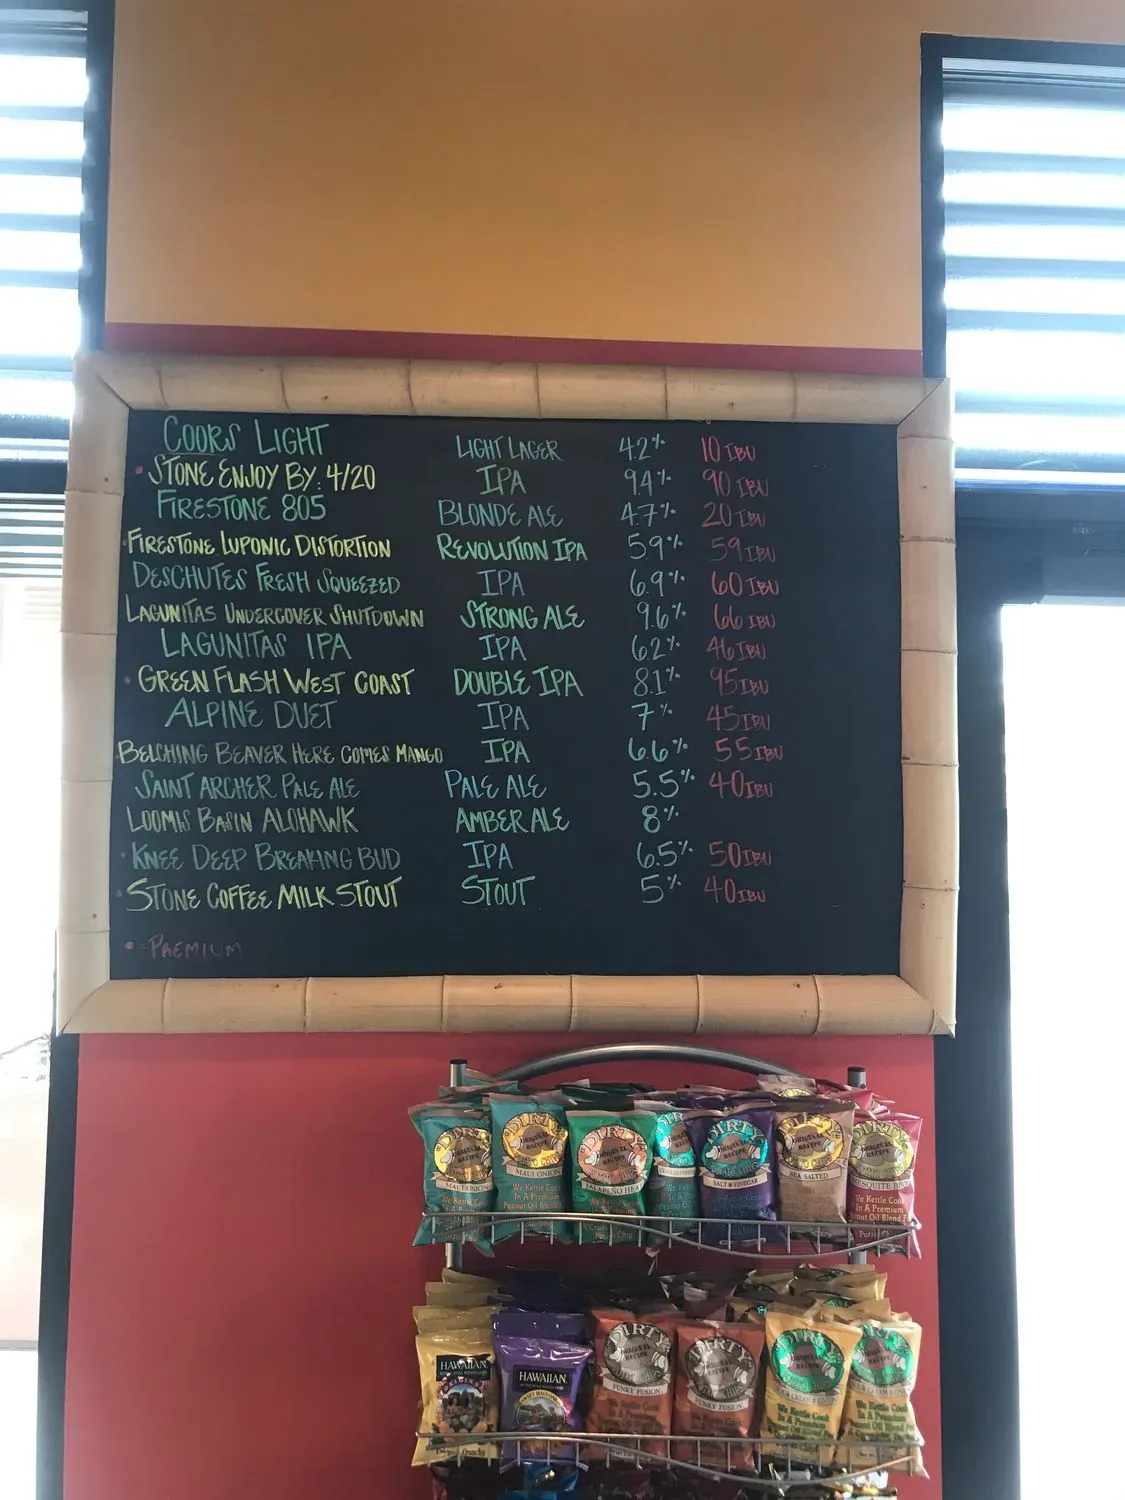 COORS LIGHT LIGHT LAGER 4.2% 10 IBU
• STONE ENJOY BY: 4/20 IPA 9.4% 90 IBU
FIRESTONE 805 BLONDE ALE 4.7% 20 IBU
• FIRESTONE LUPONIC DISTORTION REVOLUTION IPA 5.9% 59 IBU
DESCHUTES FRESH SQUEEZED IPA 6.9% 60 IBU
LAGUNITAS UNDERCOVER SHUTDOWN STRONG ALE 9.6% 66 IBU
LAGUNITAS IPA IPA 6.2% 46 IBU
• GREEN FLASH WEST COAST DOUBLE IPA 8.1% 95 IBU
ALPINE DUET IPA 7% 45 IBU
BELCHING BEAVER HERE COMES MANGO IPA 6.6% 55 IBU
SAINT ARCHER PALE ALE PALE ALE 5.5% 40 IBU
LOOMIS BASIN ALOHAWK AMBER ALE 8%
• KNEE DEEP BREAKING BUD IPA 6.5% 50 IBU
• STONE COFFEE MILK STOUT STOUT 5% 40 IBU
• = PREMIUM
DIRTY DIRTY DIRTY DIRTY DIRTY DIRTY
ORIGINAL RECIPE
POTATO CHIPS
MAUI ONION MAUI ONION JALAPEÑO HEAT SALT & VINEGAR SEA SALTED MESQUITE BBQ
We Kettle Cook
In A Premium
Peanut Oil Blend
Potato Chip
HAWAIIAN HAWAIIAN DIRTY DIRTY DIRTY DIRTY
ORIGINAL RECIPE
FUNKY FUSION FUNKY FUSION
We Kettle Cook
In A Premium
Peanut Oil Blend